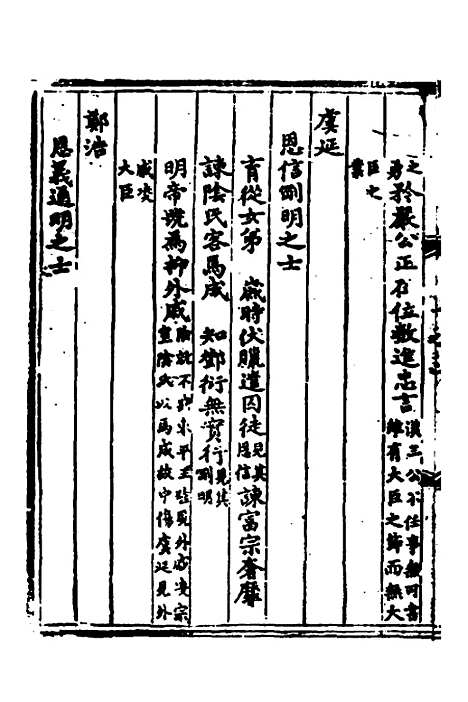 之矜嚴公正在位數進忠言漢三公不任事無可書
勇 雖有大臣之節而無大
臣之
業
虞延
恩信剛明之士
育從女弟 歲時伏臘遣囚徒見其恩信諫富宗奢靡
諫陰氏客馬成 知鄧衍無實行見其剛明
明帝號為抑外戚
重陰氏以馬成故中傷虞延見外
戚陵
大臣
鄭浩
恩義通明之士